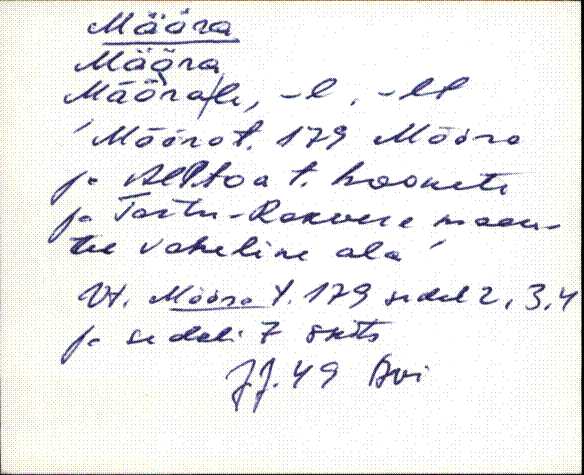 Määra
Määra
Määra/le, -l, -lt
'Määra t. 179 Määra
ja t. hoonete
ja Tartu-Rakvere maan-
tee vaheline ala'
Vt. Määra t. 179 sedel 2, 3, 4
ja sedeli 7 skits
J.J. 49 Avi